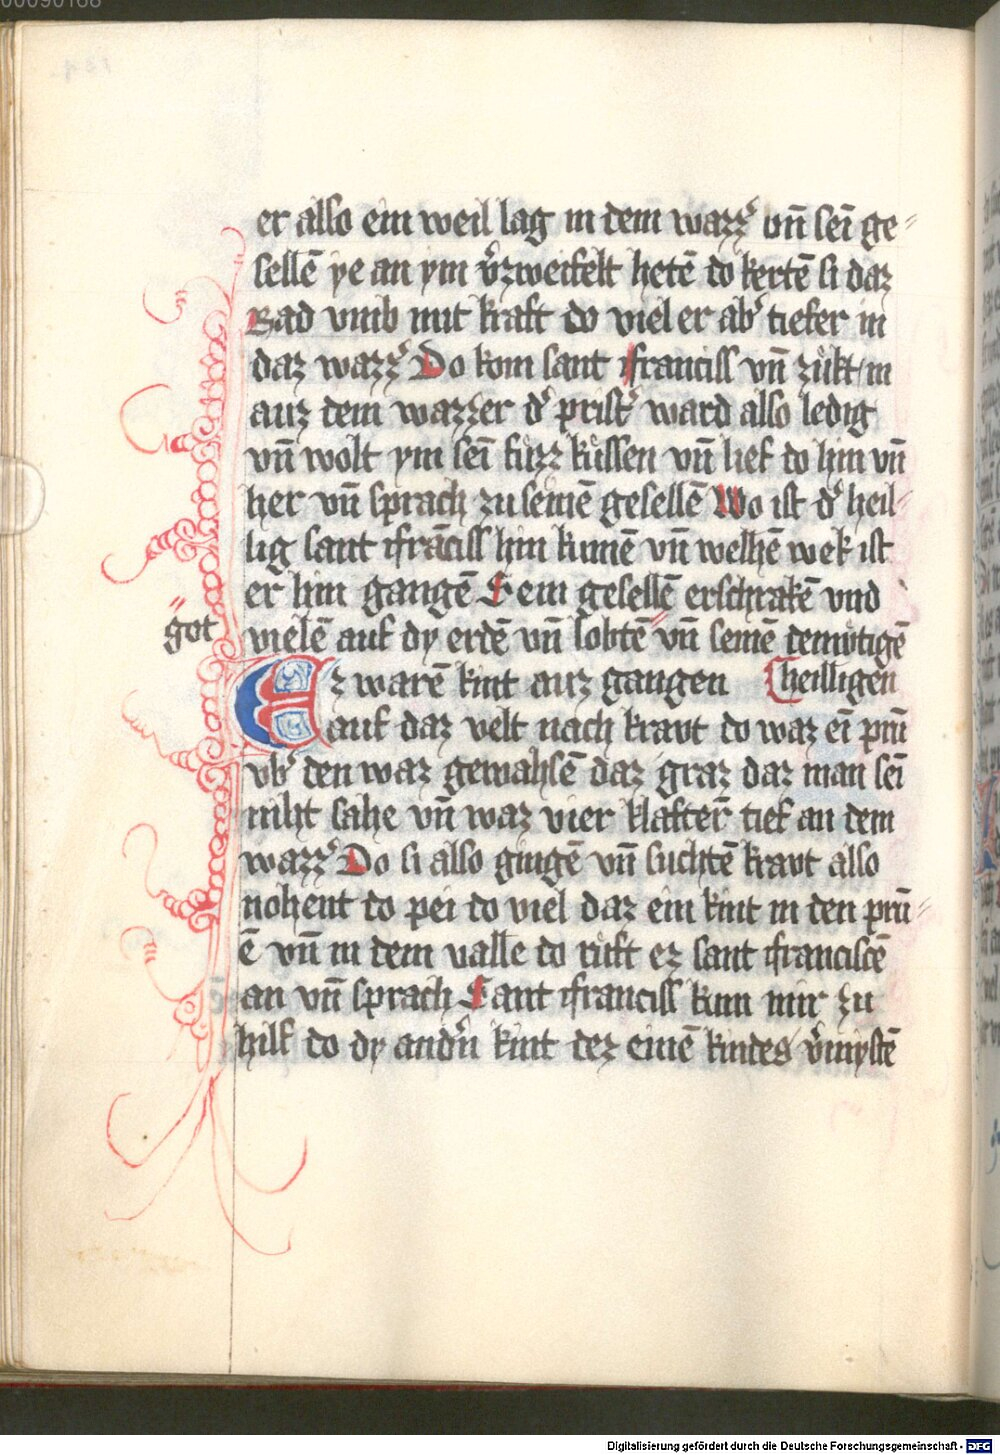 er also ein weil lag in dem wazz᷑ vn̄ sei̅ ge⸗
sellē ye an ym v᷑zweifelt hetē do kertē si daz
Rad vmb mit kraft do viel er ab᷑ tiefer in
daz wazz᷑ Do kom sant franciss vn̄ zuͤkt in
auz dem wazzer d᷑ prist᷑ ward also ledig
vn̄ wolt ym sei̅ fuͤzz kuͤssen vn̄ lief do hin vn̄
her vn̄ sprach zu seinē gesellē Wo ist d᷑ heil⸗
lig sant frāciss hin kumē vn̄ welhē wek ist
er hin gangē Sein gesellē erschrakē vnd
got
vielē auf dy erdē vn̄ lobtē vn̄ seinē demuͤtigē
heilligen
Ez warē kint auz gangen
auf daz velt nach kravt do waz ei̅ prū
vb᷑ den waz gewahsē daz graz daz man sei̅
niht sahe vn̄ waz vier klafter̄ tief an dem
wazz᷑ Do si also gingē vn̄ suchtē kravt also
nohent do pei do viel daz ein kint in den prū⸗
ē vn̄ in dem valle do ruͤft ez sant franciscē
an vn̄ sprach Sant franciss kum mir zu
hilf do dy and᷑n kint dez einē kindes v᷑mystē
Digitalisierung gefördert durch die Deutsche Forschungsgemeinschaft - DFG